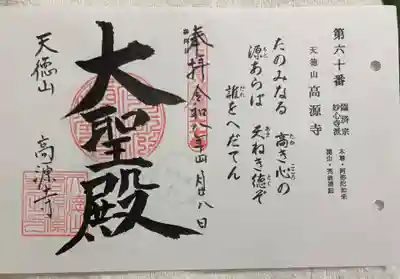 第六十番
臨済宗
妙心寺派
天徳山 高源寺
本尊・阿弥陀如来
たのみなる 高き心の
源あらば 天ねき徳ぞ
誰をへだてん
奉拝 令和八年四月廿八日
大聖殿
天徳山
高源寺